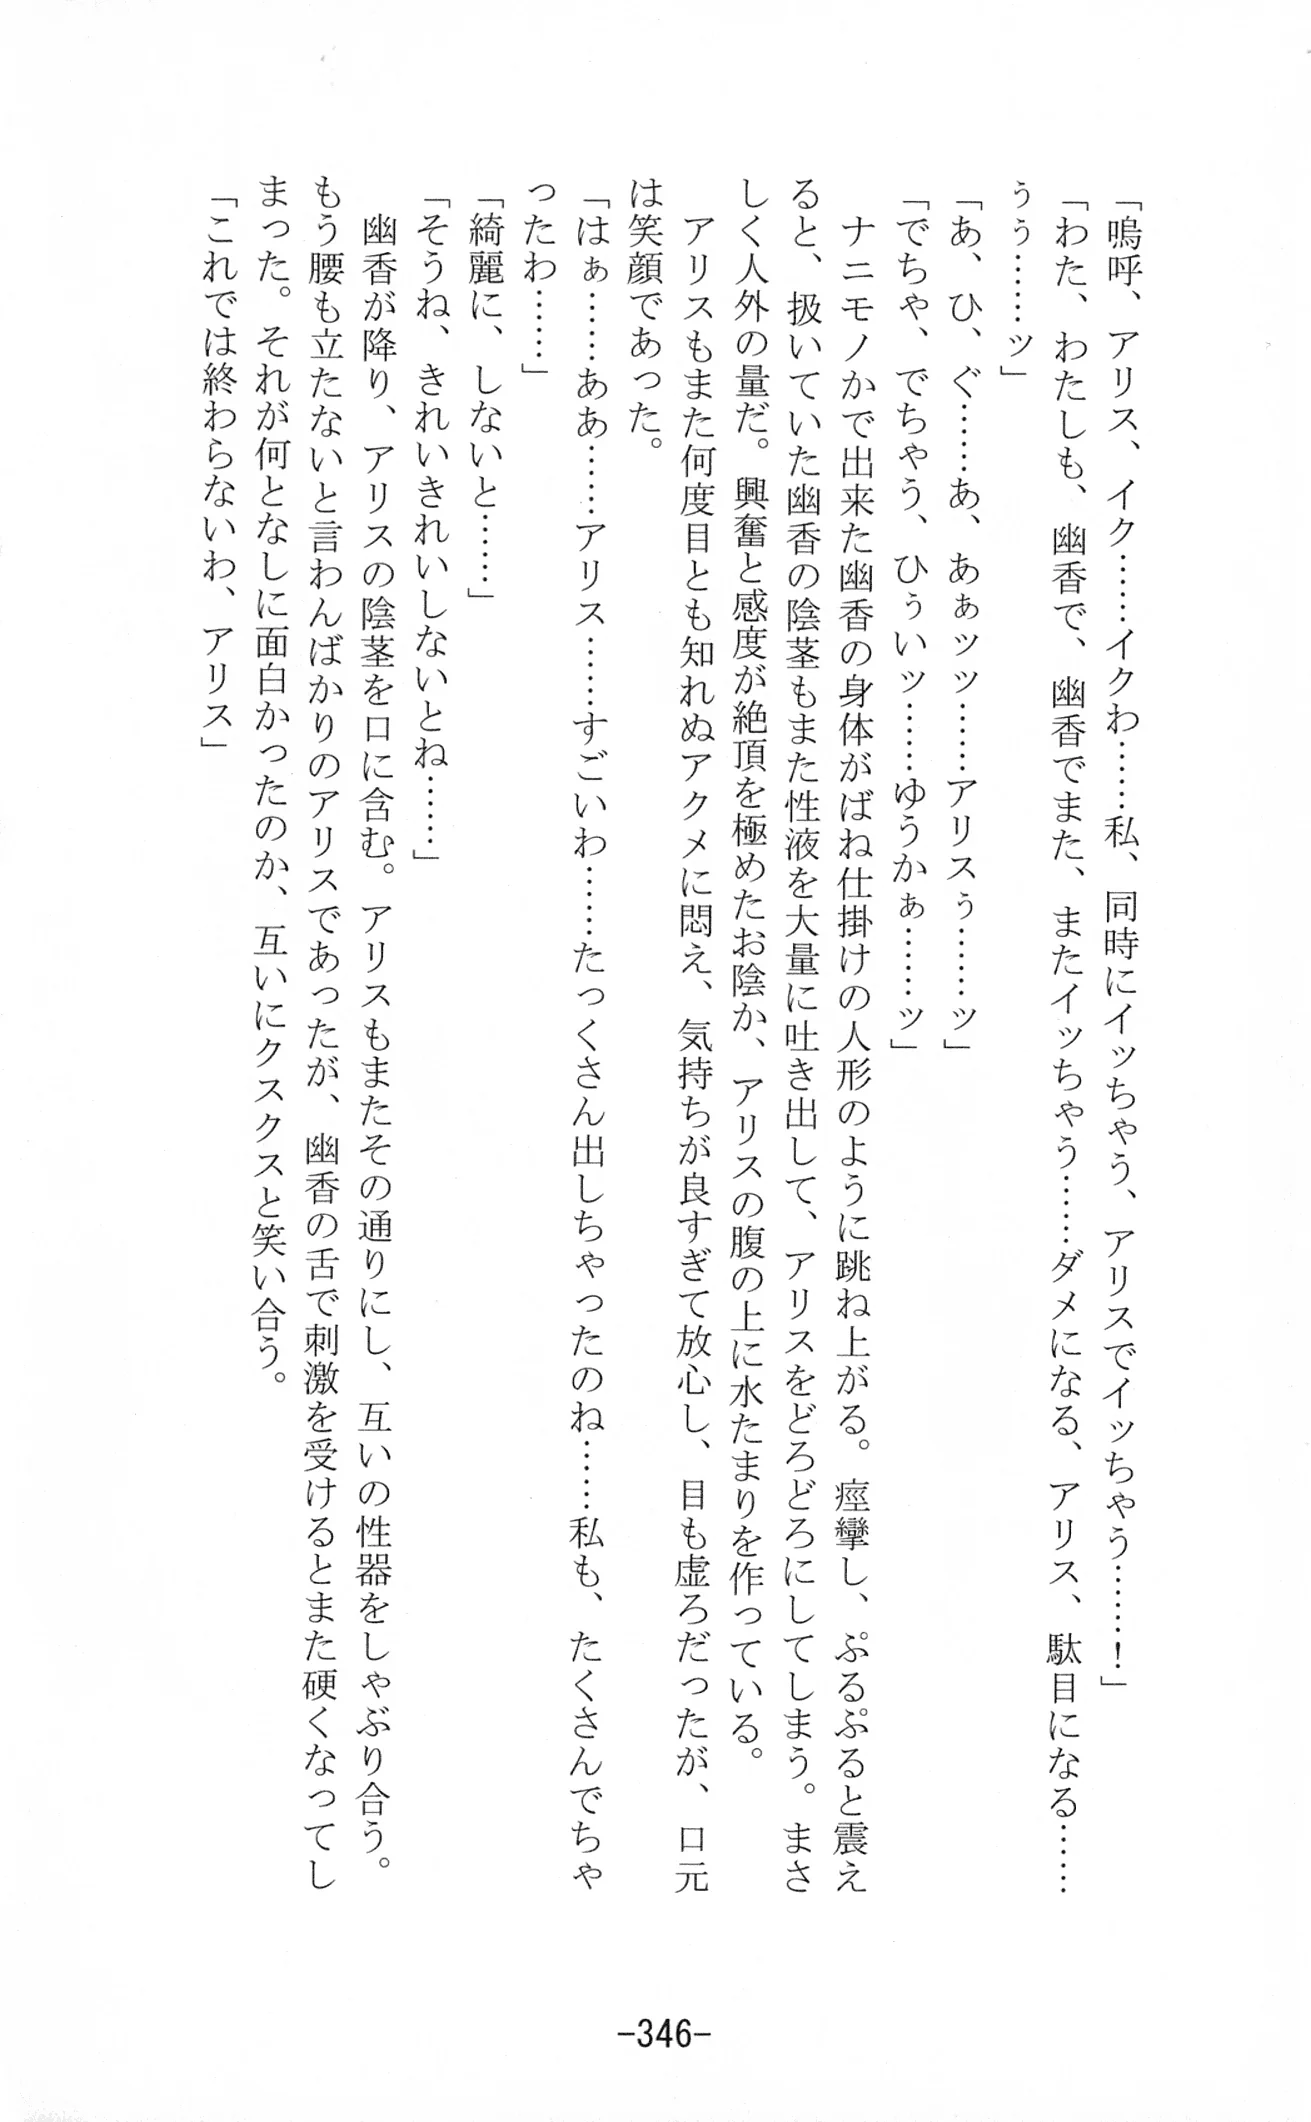 「嗚呼、アリス、イク……イクわ……私、同時にイッちゃう、アリスでイッちゃう……！」
「わた、わたしも、幽香で、幽香でまた、またイッちゃう……ダメになる、アリス、駄目になる……
ぅぅ……ッ」
「あ、ひ、ぐ……あ、あぁッッ……アリスぅ……ッ」
「でちゃ、でちゃう、ひぅいッ……ゆうかぁ……ッ」
　ナニモノかで出来た幽香の身体がばね仕掛けの人形のように跳ね上がる。痙攣し、ぷるぷると震え
ると、扱いていた幽香の陰茎もまた性液を大量に吐き出して、アリスをどろどろにしてしまう。まさ
しく人外の量だ。興奮と感度が絶頂を極めたお陰か、アリスの腹の上に水たまりを作っている。
　アリスもまた何度目とも知れぬアクメに悶え、気持ちが良すぎて放心し、目も虚ろだったが、口元
は笑顔であった。
「はぁ……ああ……アリス……すごいわ……たっくさん出しちゃったのね……私も、たくさんでちゃ
ったわ……」
「綺麗に、しないと……」
「そうね、きれいきれいしないとね……」
　幽香が降り、アリスの陰茎を口に含む。アリスもまたその通りにし、互いの性器をしゃぶり合う。
もう腰も立たないと言わんばかりのアリスであったが、幽香の舌で刺激を受けるとまた硬くなってし
まった。それが何となしに面白かったのか、互いにクスクスと笑い合う。
「これでは終わらないわ、アリス」
-346-